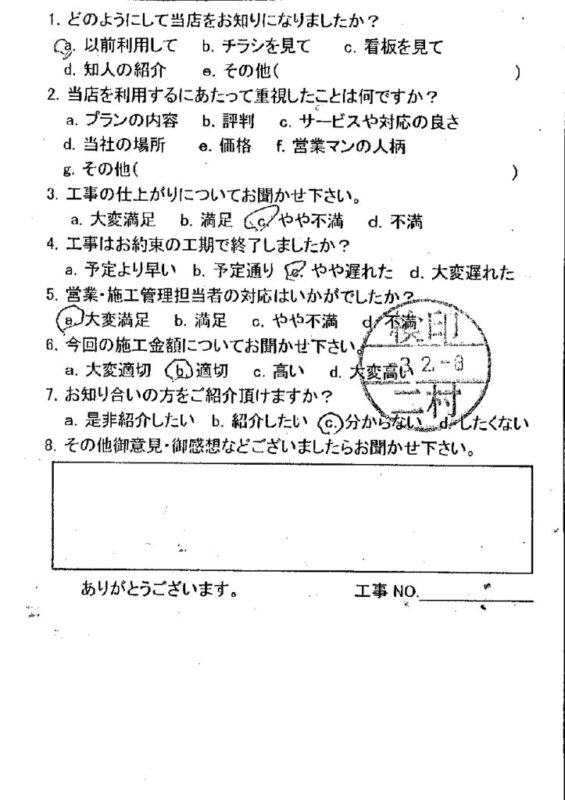 1. どのようにして当店をお知りになりましたか？
a. 以前利用して b. チラシを見て c. 看板を見て
d. 知人の紹介 e. その他( )
2. 当店を利用するにあたって重視したことは何ですか？
a. プランの内容 b. 評判 c. サービスや対応の良さ
d. 当社の場所 e. 価格 f. 営業マンの人柄
g. その他( )
3. 工事の仕上がりについてお聞かせ下さい。
a. 大変満足 b. 満足 c. やや不満 d. 不満
4. 工事はお約束の工期で終了しましたか？
a. 予定より早い b. 予定通り c. やや遅れた d. 大変遅れた
5. 営業・施工管理担当者の対応はいかがでしたか？
a. 大変満足 b. 満足 c. やや不満 d. 不満
検印
6. 今回の施工金額についてお聞かせ下さい。
a. 大変適切 b. 適切 c. 高い d. 大変高い
三村
7. お知り合いの方をご紹介頂けますか？
a. 是非紹介したい b. 紹介したい c. 分からない d. したくない
8. その他御意見・御感想などございましたらお聞かせ下さい。
ありがとうございます。 工事 NO.